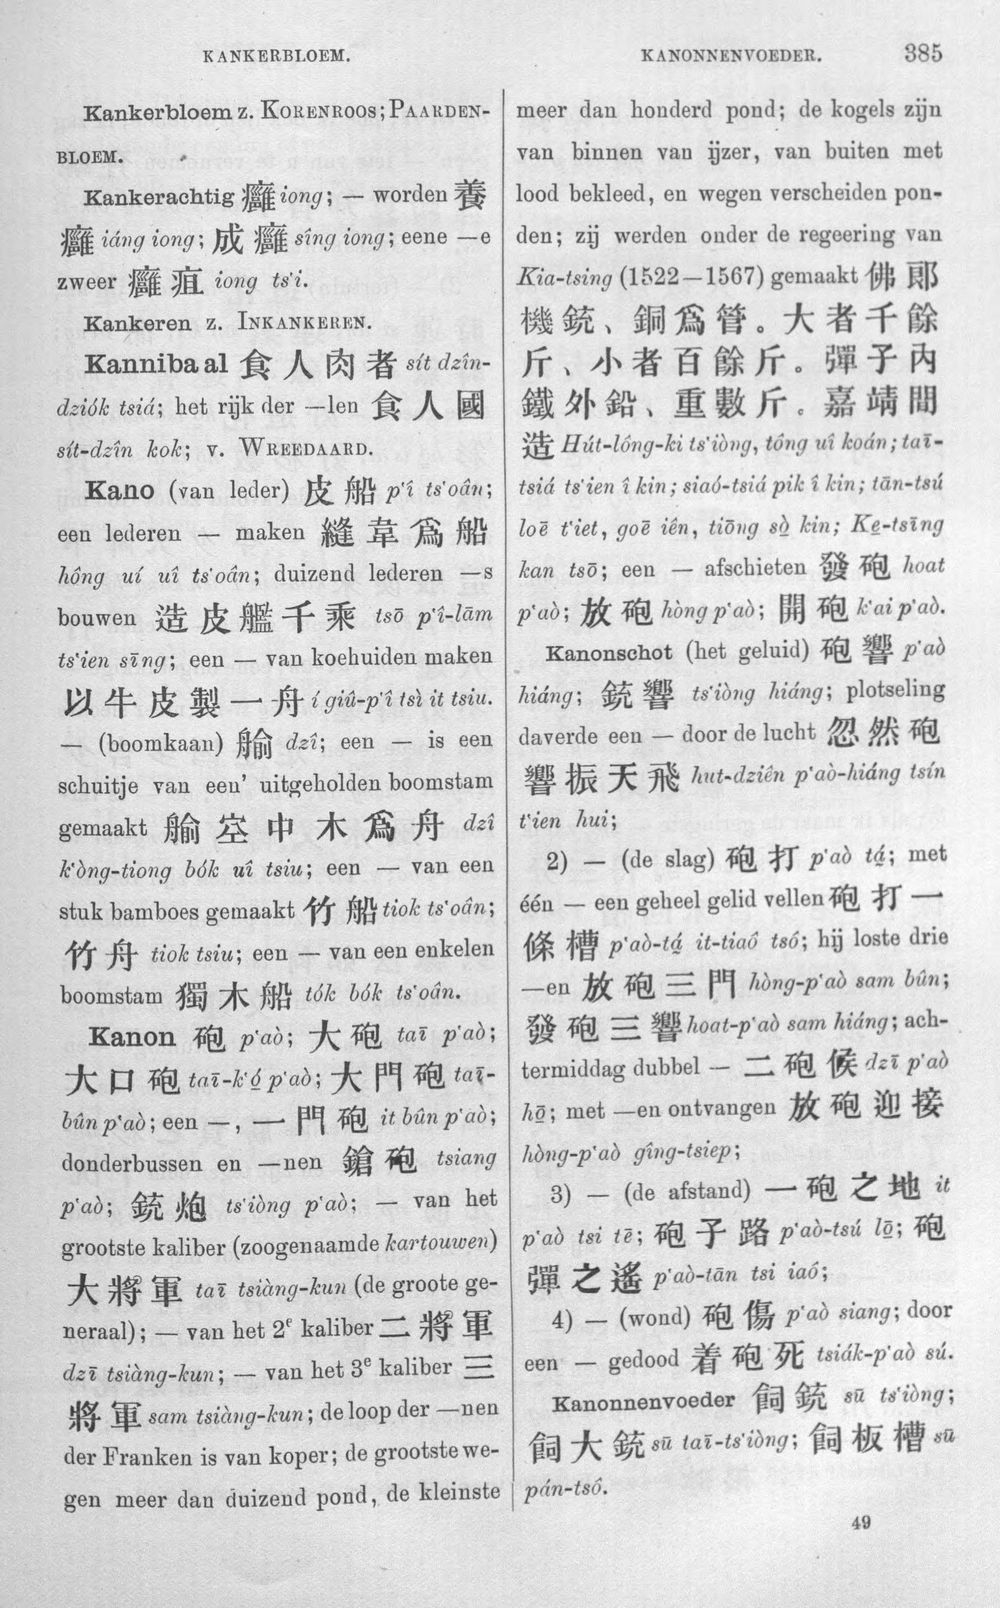 KANKERBLOEM.
KANONNENVOEDER.
385
Kankerbloem z. KORENROOS; PAARDEN-
BLOEM.
Kankerachtig 癰 iong; — worden 養
癰 iáng iong; 成 癰 sîng iong; eene —e
zweer 癰 疽 iong ts‘i.
Kankeren z. INKANKEREN.
Kannibaal 食 人 肉 者 sít dzîn-
dziók tsiá; het rijk der —len 食 人 國
sít-dzîn kok; v. WREEDAARD.
Kano (van leder) 皮 船 p‘î ts‘oân;
een lederen — maken 縫 韋 爲 船
hông uí uî ts‘oân; duizend lederen —s
bouwen 造 皮 艦 千 乘 tsō p‘î-lām
ts‘ien sīng; een — van koehuiden maken
以 牛 皮 製 一 舟 í giû-p‘î tsì it tsiu.
— (boomkaan) 艄 dzî; een — is een
schuitje van een’ uitgeholden boomstam
gemaakt 空 中 木 爲 舟 dzî
k‘òng-tiong bók uî tsiu; een — van een
stuk bamboes gemaakt 竹 船 tiok ts‘oân;
竹 舟 tiok tsiu; een — van een enkelen
boomstam 獨 木 船 tók bók ts‘oân.
Kanon 砲 p‘aò; 大 砲 taī p‘aò;
大 口 砲 taī-k‘ó̤ p‘aò; 大 門 砲 taī-
bûn p‘aò; een —, 一 門 砲 it bûn p‘aò;
donderbussen en —nen 鎗 砲 tsiang
p‘aò; 銃 炮 ts‘iòng p‘aò; — van het
grootste kaliber (zoogenaamde kartouwen)
大 將 軍 taī tsiàng-kun (de groote ge-
neraal); — van het 2e kaliber 二 將 軍
dzī tsiàng-kun; — van het 3e kaliber 三
將 軍 sam tsiàng-kun; de loop der —nen
der Franken is van koper; de grootste we-
gen meer dan duizend pond, de kleinste
meer dan honderd pond; de kogels zijn
van binnen van ijzer, van buiten met
lood bekleed, en wegen verscheiden pon-
den; zij werden onder de regeering van
Kia-tsing (1522—1567) gemaakt 佛 郞
機 銃、銅 爲 管。大 者 千 餘
斤、小 者 百 餘 斤。彈 子 內
鐵 外 鉛、重 數 斤。嘉 靖 間
造 Hút-lông-ki ts‘iòng, tông uî koán; taī-
tsiá ts‘ien î kin; siaó-tsiá pik î kin; tān-tsú
loē t‘iet, goē iên, tiōng sò̤ kin; Ke̤-tsīng
kan tsō; een — afschieten 發 砲 hoat
p‘aò; 放 砲 hòng p‘aò; 開 砲 k‘ai p‘aò.
Kanonschot (het geluid) 砲 響 p‘aò
hiáng; 銃 響 ts‘iòng hiáng; plotseling
daverde een — door de lucht 忽 然 砲
響 振 天 飛 hut-dziên p‘aò-hiáng tsín
t‘ien hui;
2) — (de slag) 砲 打 p‘aò tá̤; met
één — een geheel gelid vellen 砲 打 一
條 槽 p‘aò-tá̤ it-tiaô tsô; hij loste drie
—en 放 砲 三 門 hòng-p‘aò sam bûn;
發 砲 三 響 hoat-p‘aò sam hiáng; ach-
termiddag dubbel — 二 砲 候 dzī p‘aò
hō̤; met —en ontvangen 放 砲 迎 接
hòng-p‘aò gîng-tsiep;
3) — (de afstand) 一 砲 之 地 it
p‘aò tsi tē; 砲 子 路 p‘aò-tsú lō̤; 砲
彈 之 遙 p‘aò-tān tsi iaô;
4) — (wond) 砲 傷 p‘aò siang; door
een — gedood 着 砲 死 tsiák-p‘aò sú.
Kanonnenvoeder 飼 銃 sū ts‘iòng;
飼 大 銃 sū taī-ts‘iòng; 飼 板 槽 sū
pán-tsô.
49